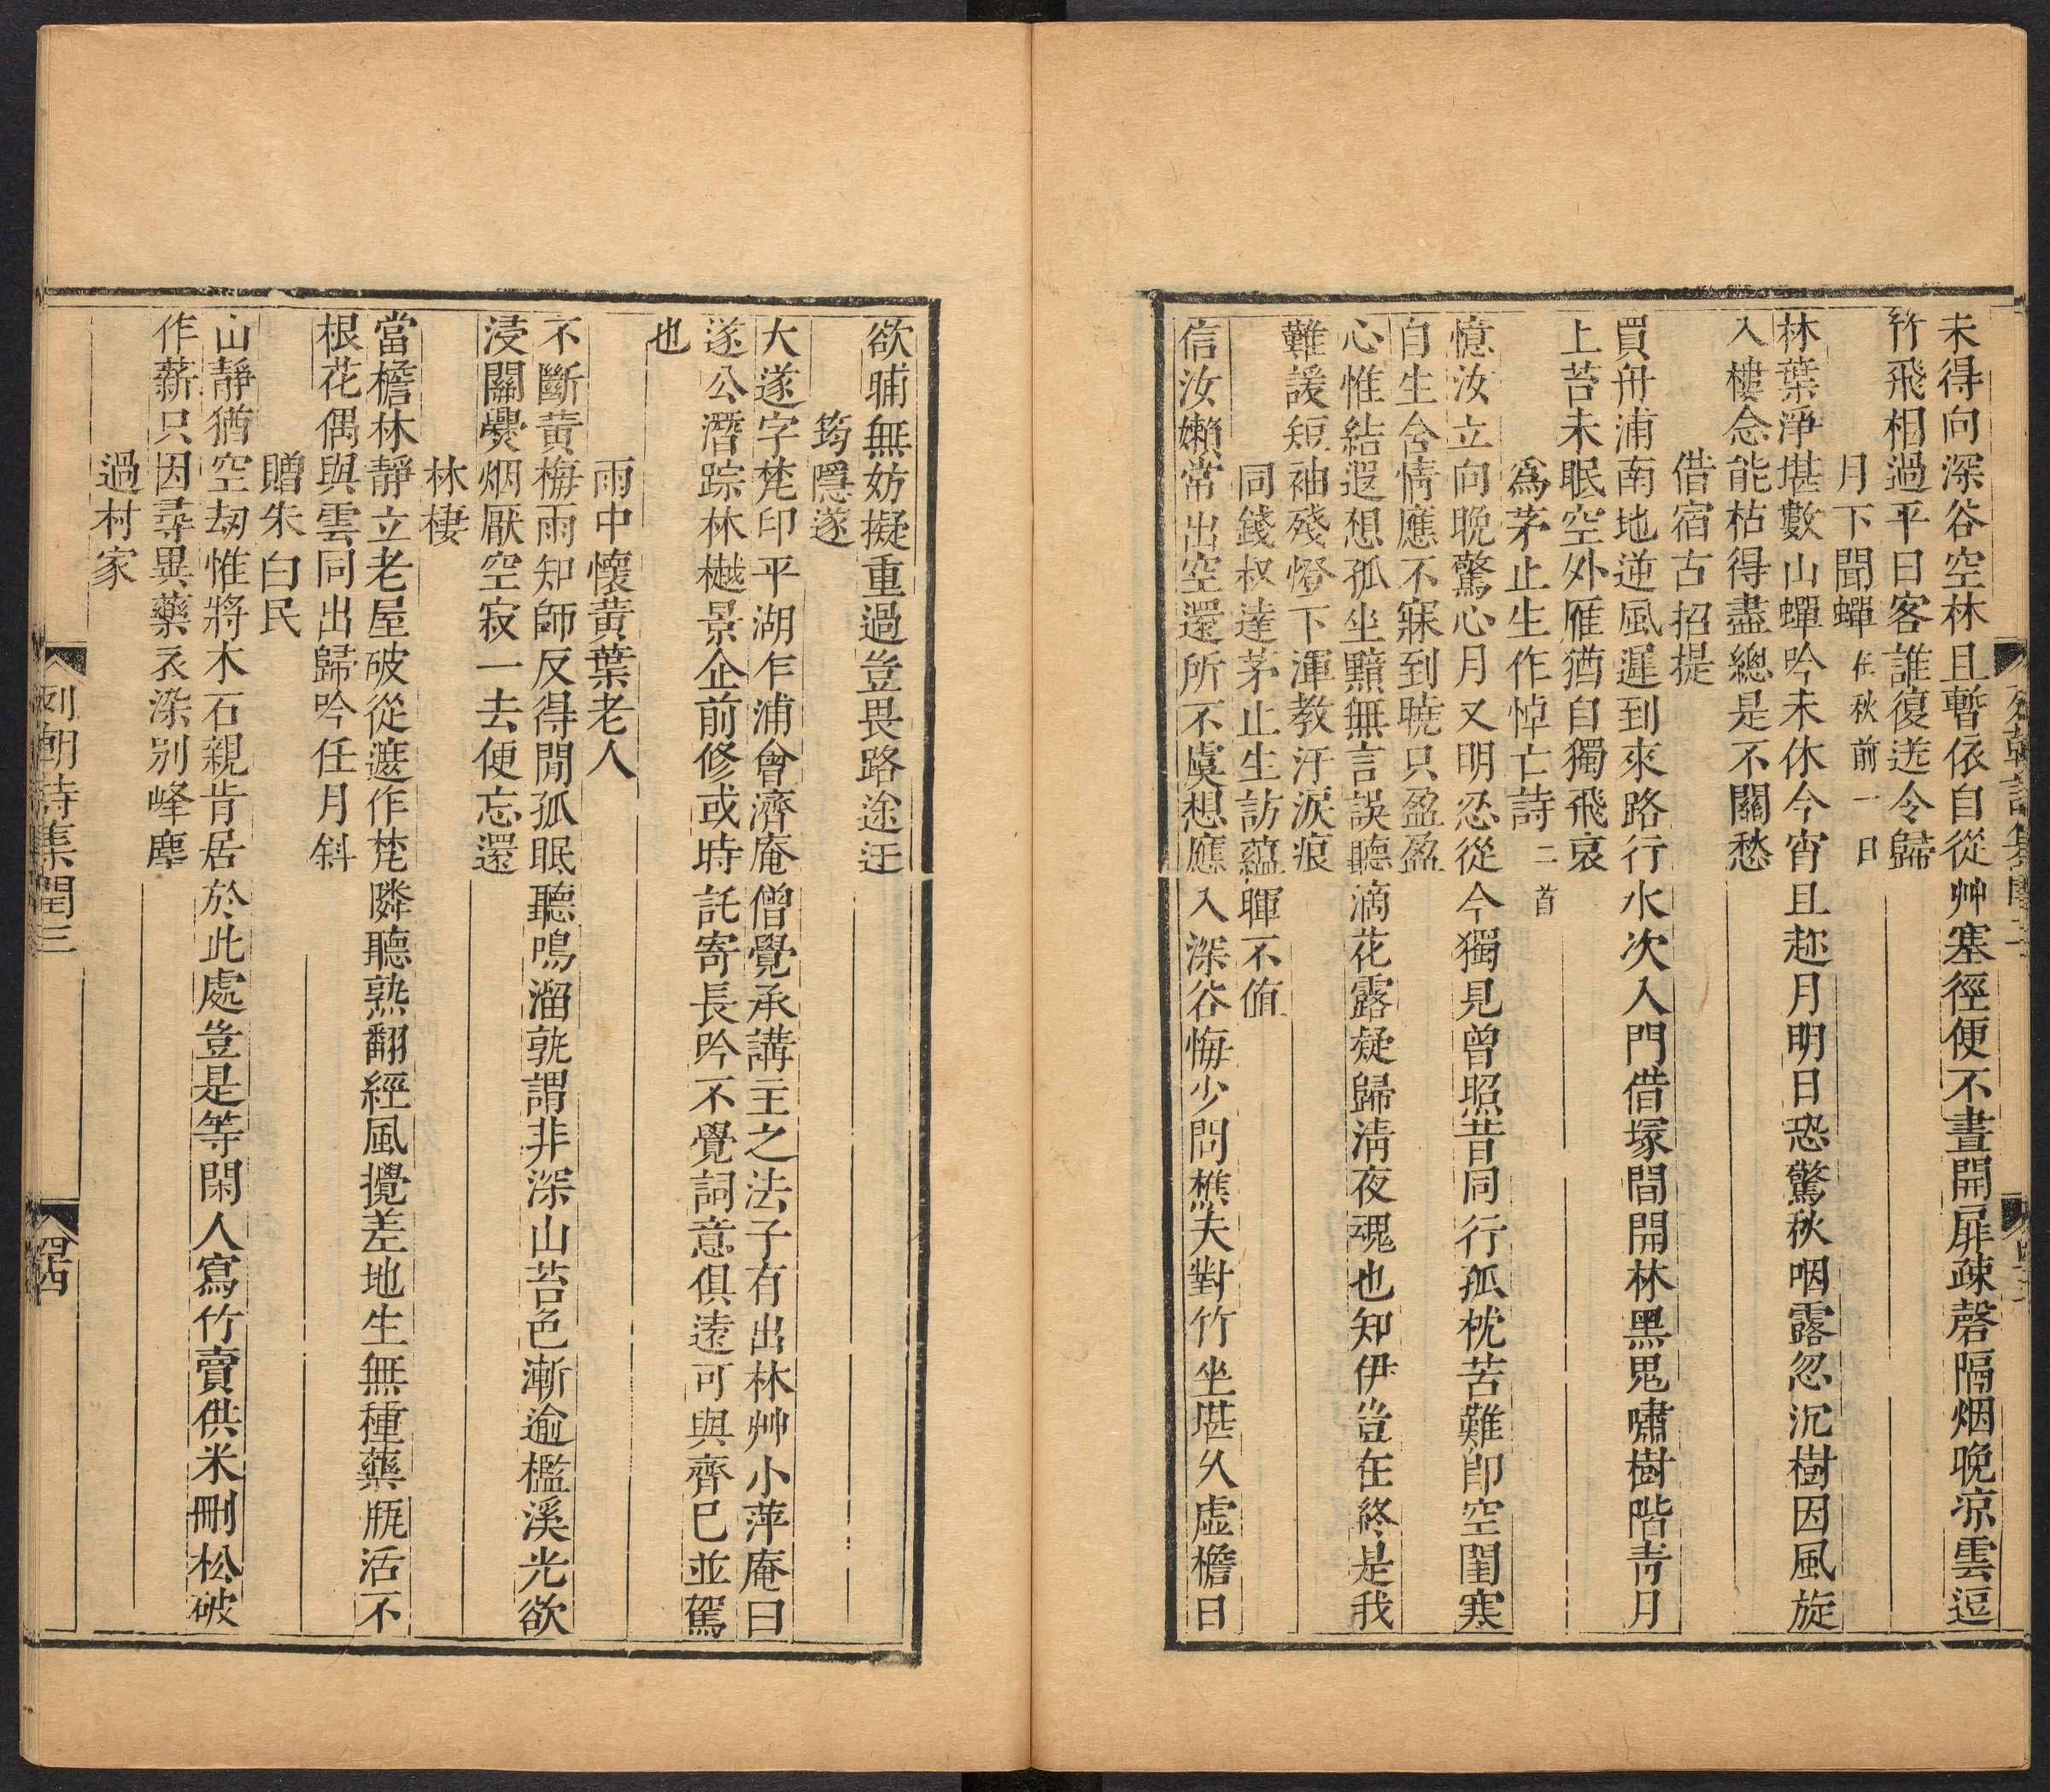 未得向深谷空林且暫依自從艸塞徑便不晝開扉疎磬隔烟晚凉雲逗
竹飛相過平日客誰復送令歸
月下聞蟬在秋前一日
林葉淨堪數山蟬吟未休今宵且趂月明日恐驚秋咽露忽沉樹因風旋
入樓念能枯得盡總是不關愁
借宿古招提
買舟浦南地逆風遲到來路行水次入門借塚間開林黑鬼嘯樹階靑月
上苔未眠空外雁猶自獨飛哀
為茅止生作悼亡詩二首
憶汝立向晚驚心月又明忍從今獨見曾照昔同行孤枕苦難卽空閨寒
自生舍情應不寐到曉只盈盈
心惟結遐想孤坐黯無言誤聽滴花露疑歸淸夜魂也知伊豈在終是我
難諼短袖殘燈下渾教汙淚痕
同錢叔達茅止生訪蘊輝不値
信汝嬾常出空還所不虞想應入深谷悔少問樵夫對竹坐堪久虛檐日
欲晡無妨擬重過豈畏路途迂
筠隱遂
大遂字梵印平湖乍浦會濟庵僧覺承講主之法子有出林艸小萍庵曰
遂公潛踪林樾景企前修或時託寄長吟不覺詞意俱遠可與齊已並駕
也
雨中懷黃葉老人
不斷黃梅雨知師反得閒孤眠聽鳴溜孰謂非深山苔色漸逾檻溪光欲
浸關㸑烟厭空寂一去便忘還
林棲
當檐林靜立老屋破從遮作梵隣聽熟翻經風攪差地生無種藥瓶活不
根花偶與雲同出歸吟任月斜
贈朱白民
山靜猶空刼惟將木石親肯居於此處豈是等閑人寫竹賣供米刪松破
作薪只因尋異藥衣染别峰塵
過村家
列朝詩集閏三
四四